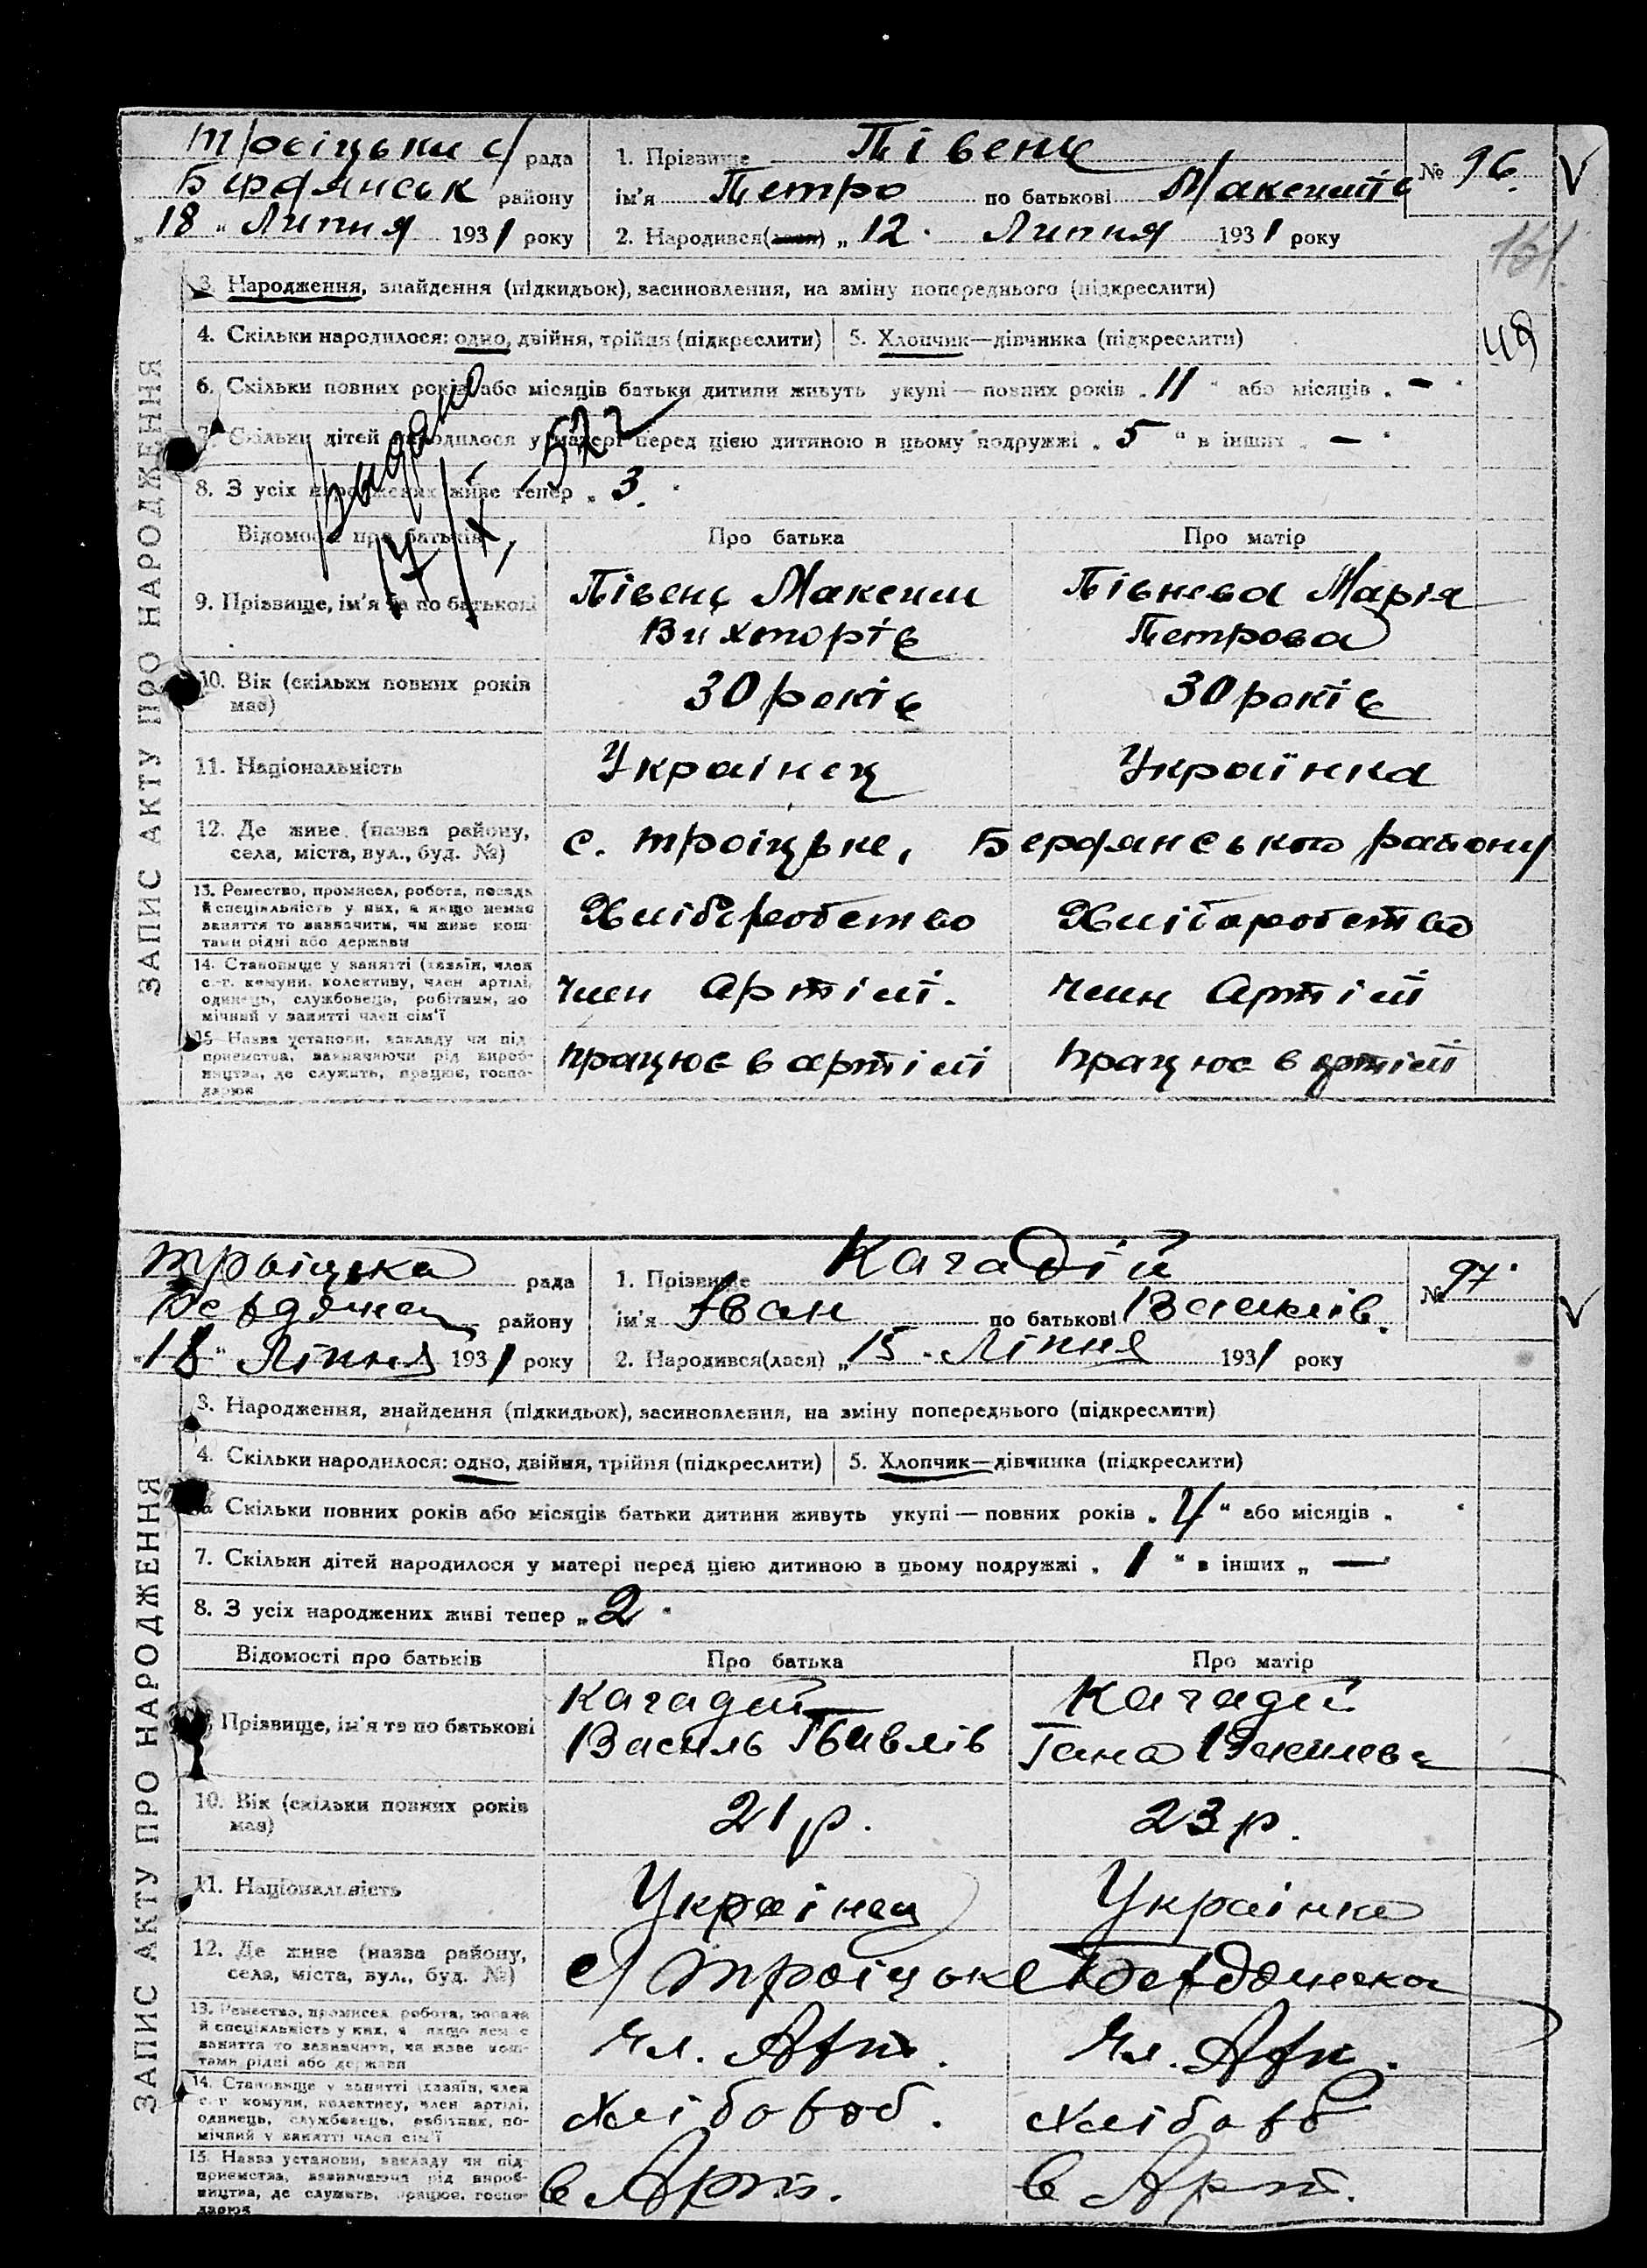 Троіцьки с/ рада
Бердянськ району
"18" Липня 1931 року
1. Прізвище Півень
№ 96.
ім'я Петро по батькові Максимів
2. Народився(лася) "12" Липня 1931 року
161
3. Народження, знайдення (підкидьок), засиновлення, на зміну попереднього (підкреслити)
4. Скільки народилося: одно, двійня, трійня (підкреслити)
5. Хлопчик—дівчинка (підкреслити)
49
6. Скільки повних років або місяців батьки дитини живуть укупі — повних років „11" або місяців „-"
7. Скільки дітей народилося у матері перед цією дитиною в цьому подружжі „5" в інших „—"
8. З усіх народжених живе тепер „3"
Выдано
17/X
Відомості про батьків
Про батька
Про матір
9. Прізвище, ім'я та по батькові
Півень Максим
Вихторів
Півнева Марія
Петрова
10. Вік (скільки повних років
має)
30 років
30 років
11. Національність
Украінец
Україїнка
12. Де живе (назва району,
села, міста, вул., буд. №)
с. Троіцьке, Бердянського району
13. Ремество, промисел, робота, посада
й спеціяльність у них, а якщо немає
заняття то зазначити, чи живе кош-
тами рідні або держави
Хліборобство
Хліборобство
14. Становище у занятті (хазяїн, член
с.-г. комуни, колективу, член артілі,
одинець, службовець, робітник, по-
мічний у занятті член сім'ї
член Артілі.
член Артілі
15. Назва установи, закладу чи під-
приємства, зазначаючи рід вироб-
ництва, де служить, працює, госпо-
дарює
працює в артілі
працює в артілі
ЗАПИС АКТУ ПРО НАРОДЖЕННЯ
Троіцька рада
району
"18" Ліпня 1931 року
1. Прізвище Качадій
№ 97.
ім'я Іван по батькові Василів.
2. Народився(лася) „15. Ліпня 1931 року
3. Народження, знайдення (підкидьок), засиновлення, на зміну попереднього (підкреслити)
4. Скільки народилося: одно, двійня, трійня (підкреслити)
5. Хлопчик—дівчинка (підкреслити)
Скільки повних років або місяців батьки дитини живуть укупі — повних років „4" або місяців „ "
7. Скільки дітей народилося у матері перед цією дитиною в цьому подружжі „1" в інших „—"
8. З усіх народжених живі тепер „2"
Відомості про батьків
Про батька
Про матір
Прізвище, ім'я та по батькові
Качадій
Василь Павлів
Качадій
Гана Василева
10. Вік (скільки повних років
має)
21 р.
23 р.
11. Національність
Украінец
Украінка
12. Де живе (назва району,
села, міста, вул., буд. №)
с/ Троіцьке
13. Ремество, промисел, робота, посада
й спеціяльність у них, а якщо немає
заняття то зазначити, чи живе кош-
тами рідні або держави
Чл. Арт.
Чл. Арт.
14. Становище у занятті (хазяїн, член
с.-г. комуни, колективу, член артілі,
одинець, службовець, робітник, по-
мічний у занятті член сім'ї
Хлібороб.
Хлібороб
15. Назва установи, закладу чи під-
приємства, зазначаючи рід вироб-
ництва, де служить, працює, госпо-
дарює
в Арт.
в Арт.
ЗАПИС АКТУ ПРО НАРОДЖЕННЯ